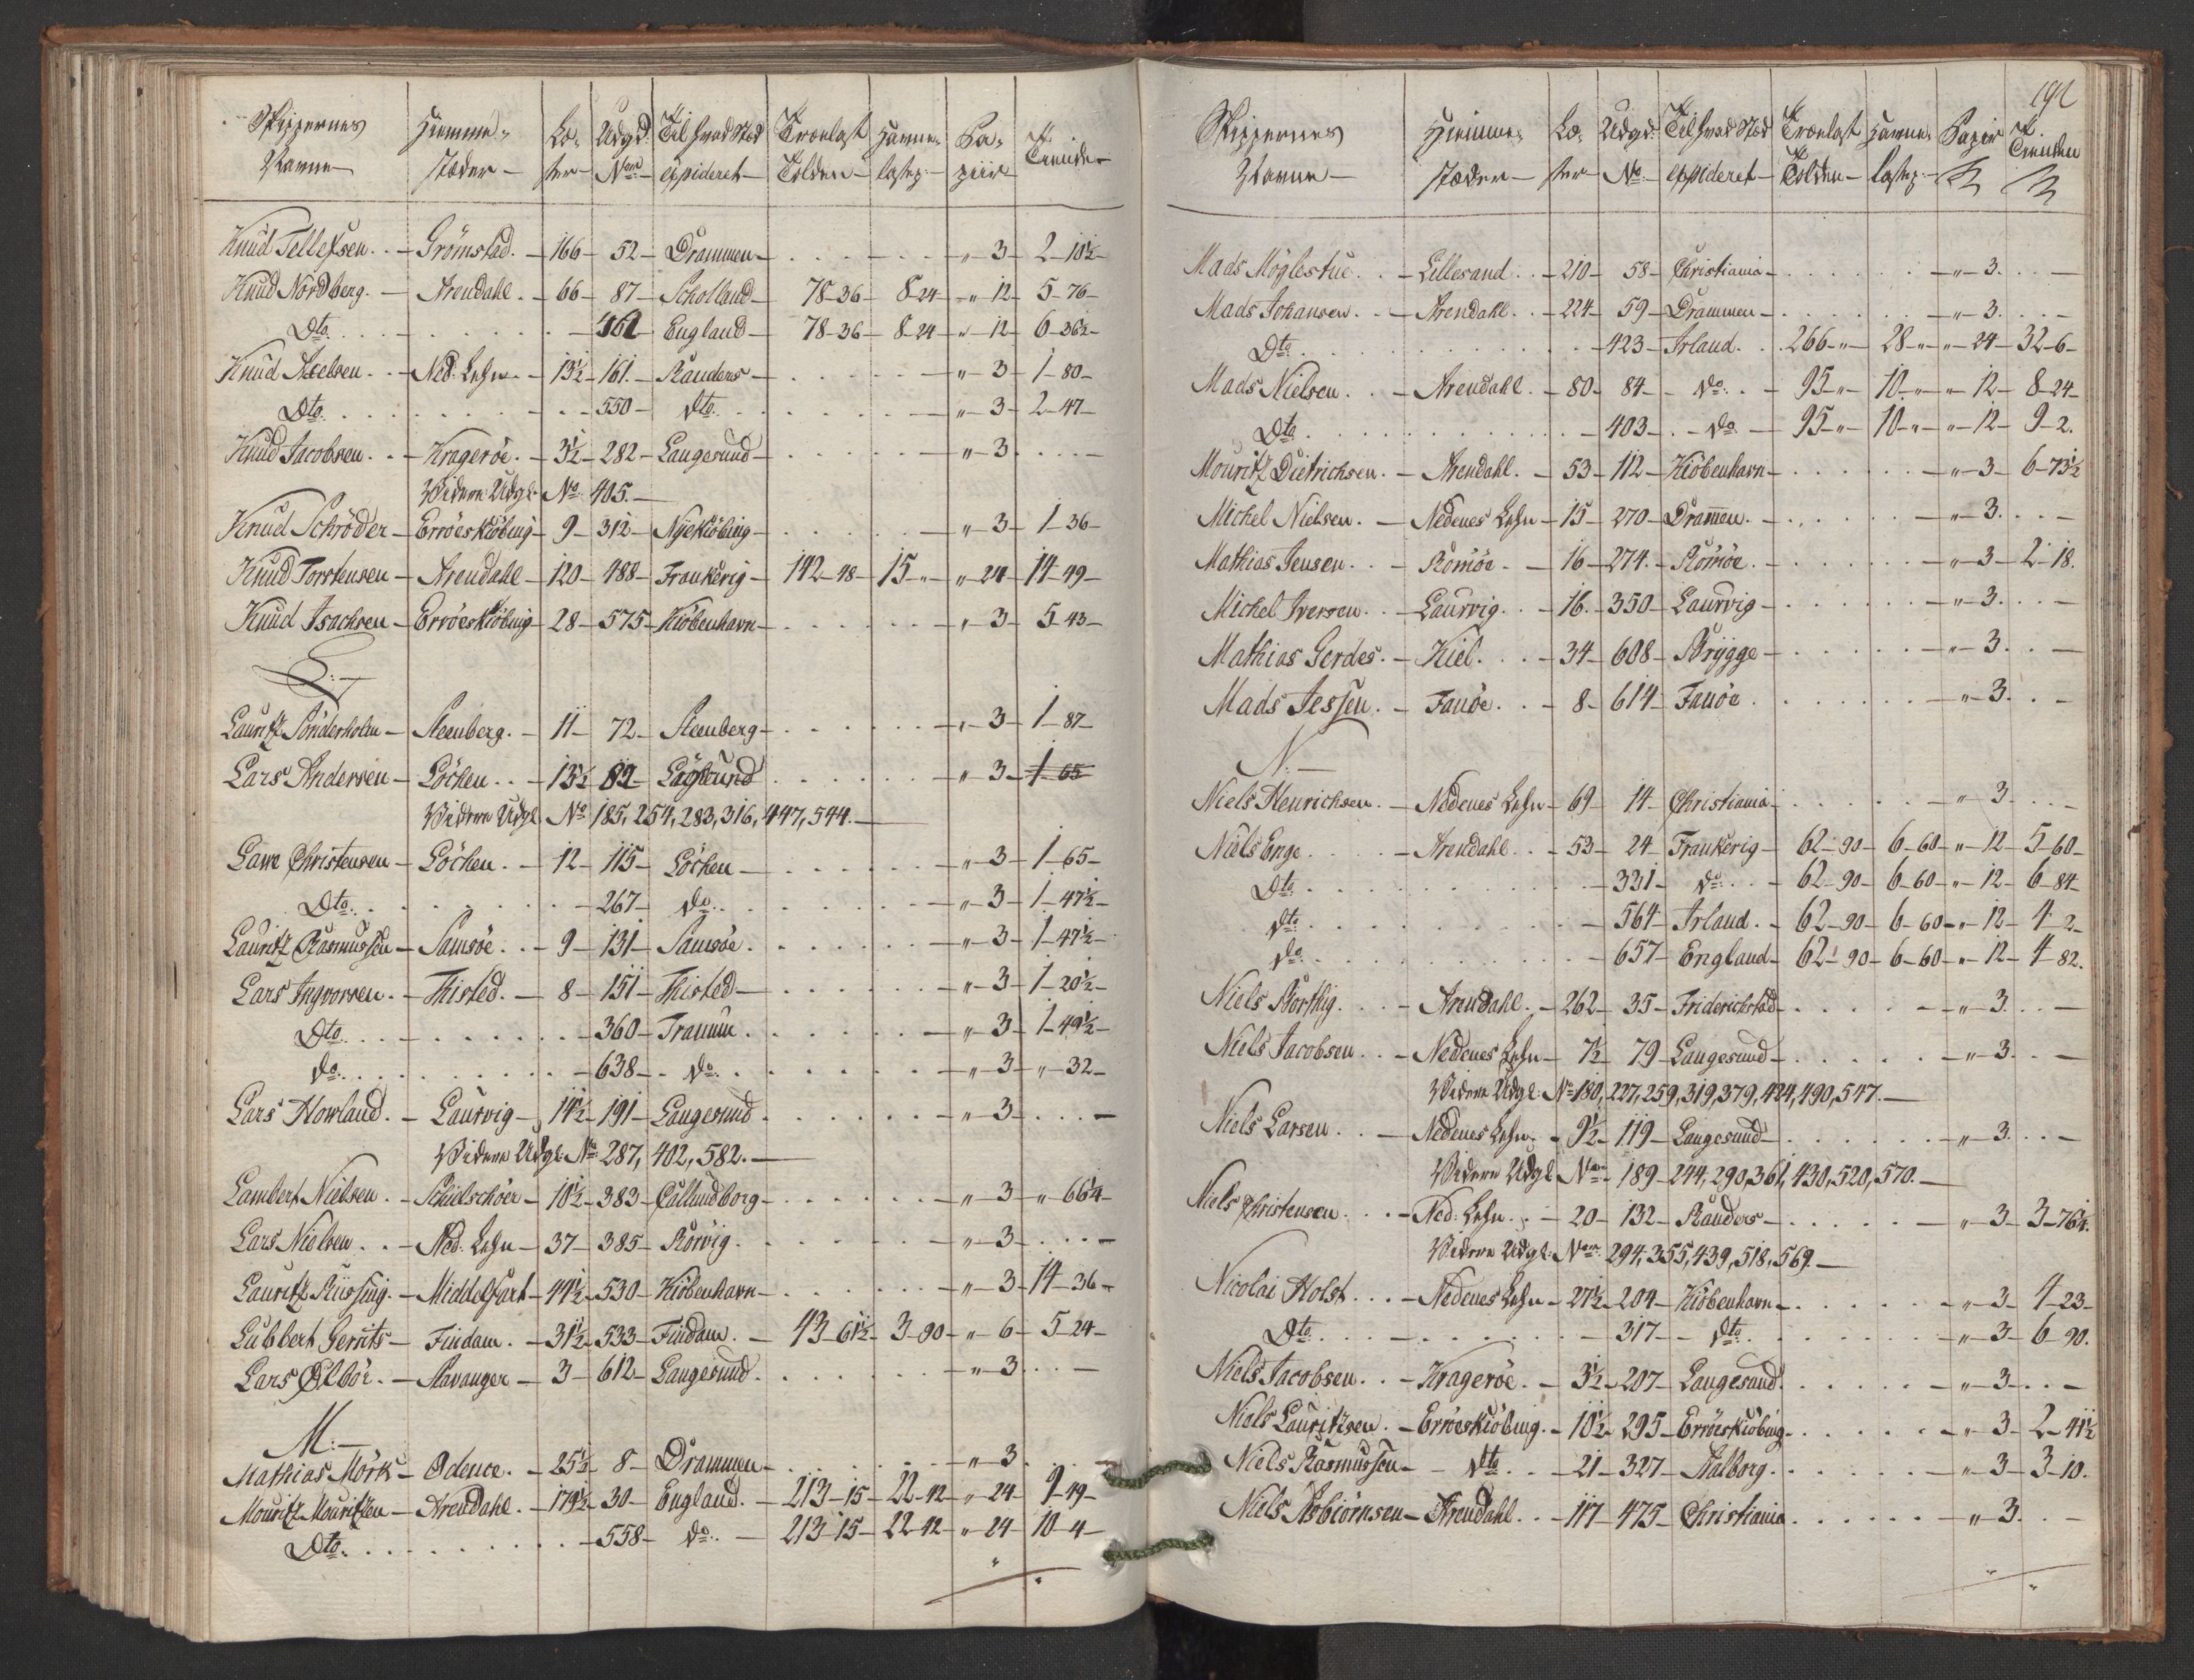 Skippernes Navne — Hiemme-stæder — Læ-ster — Udgl. No — Til hvad Stæd expideret — Trælast Tolden — Havne lastep. — Pa-piir — Tiender
Knud Tellefsen. — Grömsted. — 166 — 52 — Drammen — „ 3 — 2-10½
Knud Nordberg. — Arendahl. — 66 — 87 — Scholland — 78-36 — 8-24 — „ 12 — 5-76
Dto. — 462 — England — 78-36 — 8-24 — „ 12 — 6-36½
Knud — Ned. Lehn — 13½ — 161. — Randers — „ 3 — 1-80
Dto. — 550 — dto. — „ 3 — 2-47
Knud Jacobsen. — Kragerøe. — 3½ — 282 — Langesund — „ 3
Videre Udgl. No 405.
Knud Schröder — Erröeskiöbing — 9 — 312 — Nyekiöbing — „ 3 — 1-36
Knud Torstensen — Arendahl — 120 — 488 — Frankerig — 142-48 — 15-„ — „ 24 — 14-49
Knud Isachsen — Erröeskiöbing — 28 — 575 — Kiöbenhavn — „ 3 — 5-43
L:
Lauritz Sönderholm — Steenberg. — 11 — 72 — Steenberg — „ 3 — 1-87
Lars Andersen — Löcken — 13½ — 82 — „ 3 — 1-65
Videre Udgl. No 185, 254, 283, 316, 447, 544.
Christensen — Löcken. — 12 — 115 — Löcken — „ 3 — 1-65
Dto. — 267 — do. — „ 3 — 1-47½
Lauritz Rasmussen — Samsöe. — 9 — 131 — Samsöe. — „ 3 — 1-47½
Lars Ingvorsen. — Thisted. — 8 — 151 — Thisted — „ 3 — 1-20½
Dto. — 360 — „ 3 — 1-49½
do. — 638 — do. — „ 3 — „ 32
Lars Howland. — Laurvig — 14½ — 191 — Langesund — „ 3
Videre Udgl. No 287, 402, 582.
Lambert Nielsen. — Schielschöer — 10½ — 383 — Callundborg — „ 3 — „ 66¼
Lars Nielsen. — Ned. Lehn — 37 — 385 — Rörvig. — „ 3
Lauritz Riissing. — Middelfart — 44½ — 530 — Kiöbenhavn — „ 3 — 14-36
Lubbert Gerrits — Findam. — 31½ — 533 — Findam. — 43-61½ — 3-90 — „ 6 — 5-24
Lars — Stavanger — 3 — 612 — Langesund. — „ 3
M:
Mathias Mörk — Odence. — 25½ — 8 — Drammen — „ 3
Mouritz Mouritzen — Arendahl. — 179½ — 30 — England. — 213-15 — 22-42 — „ 24 — 9-49
Dto. — 558 — do. — 213-15 — 22-42 — „ 24 — 10-4
191
Skippernes Navne — Hiemme-stæder — Læ-ster — Udgl. No — Til hvad Stæd expideret — Trælast Tolden — Havne lastep. — Papir — Tienden
Mads Möglestue. — Lillesand. — 210 — 58 — Christiania — „ 3
Mads Johansen. — Arendahl. — 224 — 59 — Drammen — „ 3
Dto. — 423 — Irland. — 266-„ — 28-„ — „ 24 — 32-6
Mads Nielsen. — Arendahl. — 80 — 84 — do. — 95-„ — 10-„ — „ 12 — 8-24
Dto. — 403 — do. — 95-„ — 10-„ — „ 12 — 9-2.
Mouritz Dietrichsen. — Arendahl. — 53 — 112 — Kiöbenhavn — „ 3 — 6-73½
Michel Nielsen. — Nedenes Lehn — 15 — 270 — Dramen. — „ 3
Mathias Jensen. — Römöe — 16 — 274. — Römöe. — „ 3 — 2-18.
Michel Iversen. — Laurvig. — 16. — 350 — Laurvig — „ 3
Mathias Gerdes. — Kiel. — 34 — 608 — Brygge — „ 3
Mads Jessen. — Fanöe. — 8 — 614 — Fanöe. — „ 3
N:
Niels Henrichsen. — Nedenes Lehn — 69 — 14 — Christiania — „ 3
Niels Enge — Arendahl. — 53 — 24 — Frankerig — 62-90 — 6-60 — „ 12 — 5-60
Dto. — 331 — do. — 62-90 — 6-60 — „ 12 — 6-84
dto. — 564 — Irland. — 62-90 — 6-60 — „ 12 — 4-2
do. — 657 — England — 62-90 — 6-60 — „ 12 — 4-82.
Niels — Arendahl. — 262 — 35 — Friderichstad — „ 3
Niels Jacobsen. — Nedenes Lehn — 7½ — 79 — Langesund — „ 3
Videre Udgl. No 180, 227, 259, 319, 379, 424, 490, 547.
Niels Larsen. — Nedenes Lehn. — 9½ — 119 — Langesund — „ 3
Videre Udgl. No 189 - 244, 290, 361, 430, 520, 570.
Niels Christensen. — Ned. Lehn. — 20 — 132 — Randers — „ 3 — 3-76¼.
Videre Udgl. No 294, 355, 439, 518, 569.
Nicolai Holst. — Nedenes Lehn — 27½ — 204 — Kiöbenhavn — „ 3 — 4-23
Dto. — 317 — dto. — „ 3 — 6-90.
Niels Jacobsen. — Kragerøe. — 3½ — 207 — Langesund. — „ 3
Niels Lauritzen. — Erröeskiöbing. — 10½ — 295 — Erröeskiöbing. — „ 3 — 2-41½
Niels Rasmussen — dto. — 21 — 327 — Aalborg. — „ 3 — 3-10.
Niels Asbiörnsen — Arendahl. — 117 — 475 — Christiania. — „ 3.